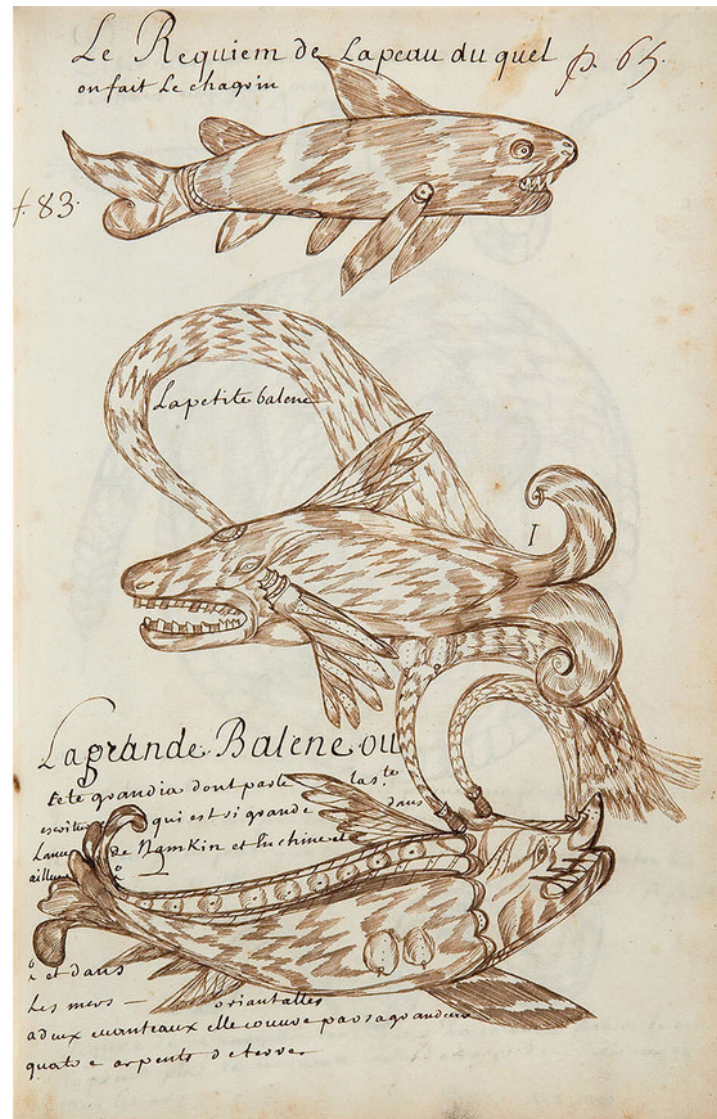 Le Requiem de Lapeau du quel p. 65.
on fait Le chagrin
f. 83.
Lapetite balene
I
Lagrande Balene ou
Cete grandia dont parle las.te
escriture qui est si grande dans
de Namkin et En chine et
ailleurs
et dans
Les mers — oriantalles
a deux euanteaux elle couure par sa grandeur
quatre arpents de terre